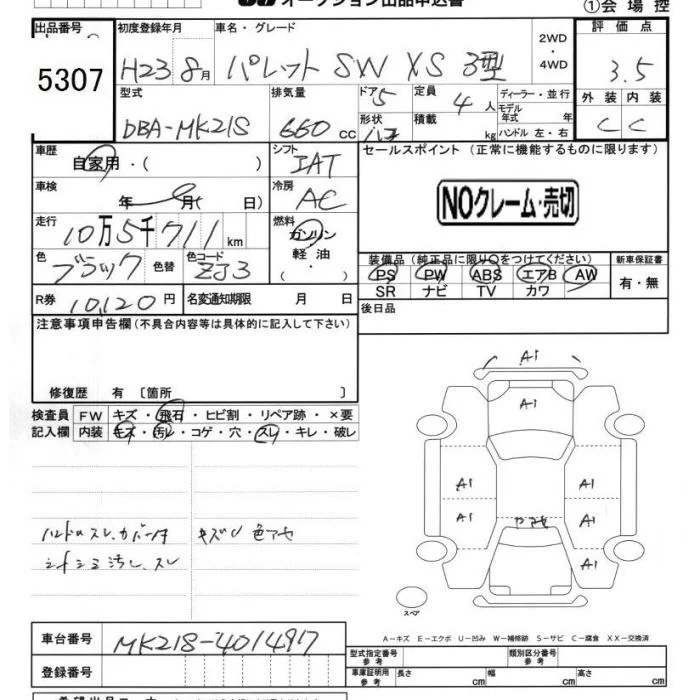 オークション出品申込書
①会場控
出品番号 初度登録年月 車名・グレード 評価点
5307 H23 8月 パレット SW XS 3型 2WD・4WD 3.5
型式 排気量 ドア 5 定員 4人 ディーラー・並行 外装 内装
DBA-MK21S 660cc 形状 ハコ 積載 kg モデル年式 年 ハンドル 左・右 C C
車歴 シフト セールスポイント (正常に機能するものに限ります)
自家用・( ) IAT
車検 冷房
年 月( 日) AC NOクレーム・売切
走行 燃料
10万5千711km ガソリン
軽油
・( )
色 色替 色コード 装備品 (純正品に限り○をつけてください) 新車保証書
ブラック ZJ3 PS PW ABS エアB AW 有・無
SR ナビ TV カワ
R券 10,120円 名変通知期限 月 日 後日品
注意事項申告欄(不具合内容等は具体的に記入して下さい)
修復歴 有 〔箇所 〕
検査員記入欄 FW キズ・飛石・ヒビ割・リペア跡・×要
内装 キズ・汚レ・コゲ・穴・スレ・キレ・破レ
ハンドルスレ、カバー キズU 色アセ
シートシミ汚レ、スレ
A1
A1
A1 A1
A1 A1
A1
スペア
A-キズ E-エクボ U-凹み W-補修跡 S-サビ C-腐食 XX-交換済
車台番号 MK21S-4014917
型式指定番号 参考 類別区分番号 参考
登録番号 車庫証明用 参考 長さ cm 幅 cm 高さ cm